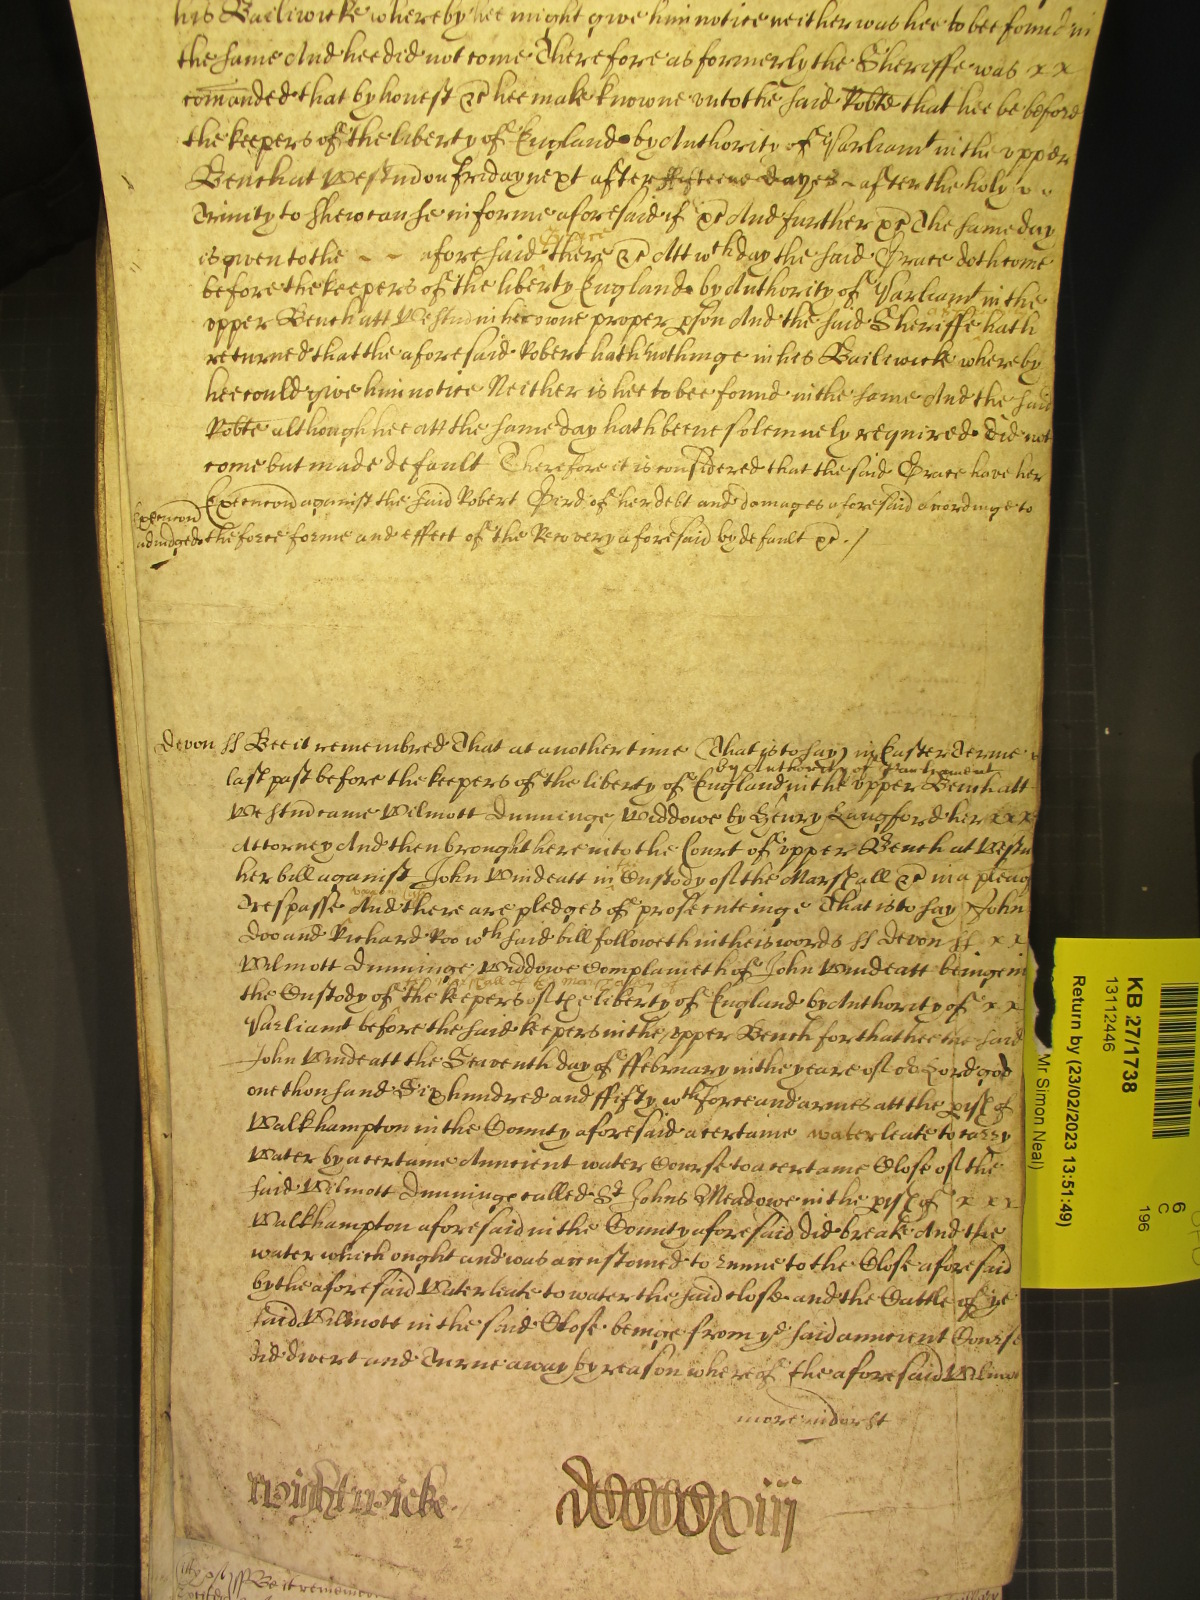 his Bailiwicke whereby hee might give him notice neither was hee to bee found in
the same And hee did not come Therefore as formerly the Sheriffe was x x
comanded that by honest &c hee make knowne unto the said Robte that hee be before
the keepers of the liberty of England by Authority of Parliamt in the upper
Bench at Westm on Friday next after ffifteene dayes after the holy
Trinity to shew cause in forme aforesaid if &c And further &c The same day
is given to the - - aforesaid Grace there &c Att wch day the said Grace doth come
before the keepers of the liberty England by Authority of Parliamt in the
upper Bench att Westm in her owne proper pson And the said Sheriffe hath
returned that the aforesaid Robert hath nothinge in his Bailiwicke whereby
hee could give him notice Neither is hee to bee found in the same And the said
Robte although hee att the same day hath beene solemnely required did not
come but made default Therefore it is considered that the said Grace have her
Execucon against the said Robert Gird of her debt and damages aforesaid accordinge to
Execucon
adiudged the force forme and effect of the Recovery aforesaid by default &c ./
Devon ss Bee it remembred That at another time (That is to say) in Easter Terme
by Authority of Parliament
last past before the keepers of the liberty of England in the upper Bench att
Westm came Wilmott Dunninge Widdowe by Henry Langford her x x x
Attorney And then brought here into the Court of upper Bench at Westm
her bill against John Windeatt in Custody of the Marshall &c in a plea of
Trespasse And there are pledges of prosecuteinge That is to say John
Doo and Richard Roo wch said bill followeth in theis words ss Devon ss x x
Wilmott Dunninge Widdowe Complaineth of John Windeatt beinge in
the Custody of the keepers of the liberty of England by Authority of x x
Parliamt before the said keepers in the upper Bench for that hee the said
John Windeatt the Seaventh day of ffebruary in the yeare of or Lord god
one thousand Six hundred and ffifty wth force and armes att the pish of
Walkhampton in the County aforesaid a certaine water leate to carry
Water by a certaine Auncient water Course to a certaine Close of the
said Wilmott Dunninge called St Johns Meadowe in the pish of x x x
Walkhampton aforesaid in the County aforesaid did breake And the
water which ought and was accustomed to runne to the Close aforesaid
by the aforesaid Water leate to water the said close and the Cattle of ye
said Wilmott in the said Close beinge from yd said auncient Course
did divert and Turne away by reason whereof the aforesaid Wilmott
more indorst
Wightwicke
KB 27/1738
13112446
Return by (23/02/2023 13:51:49)
Mr Simon Neal)
6
C
196